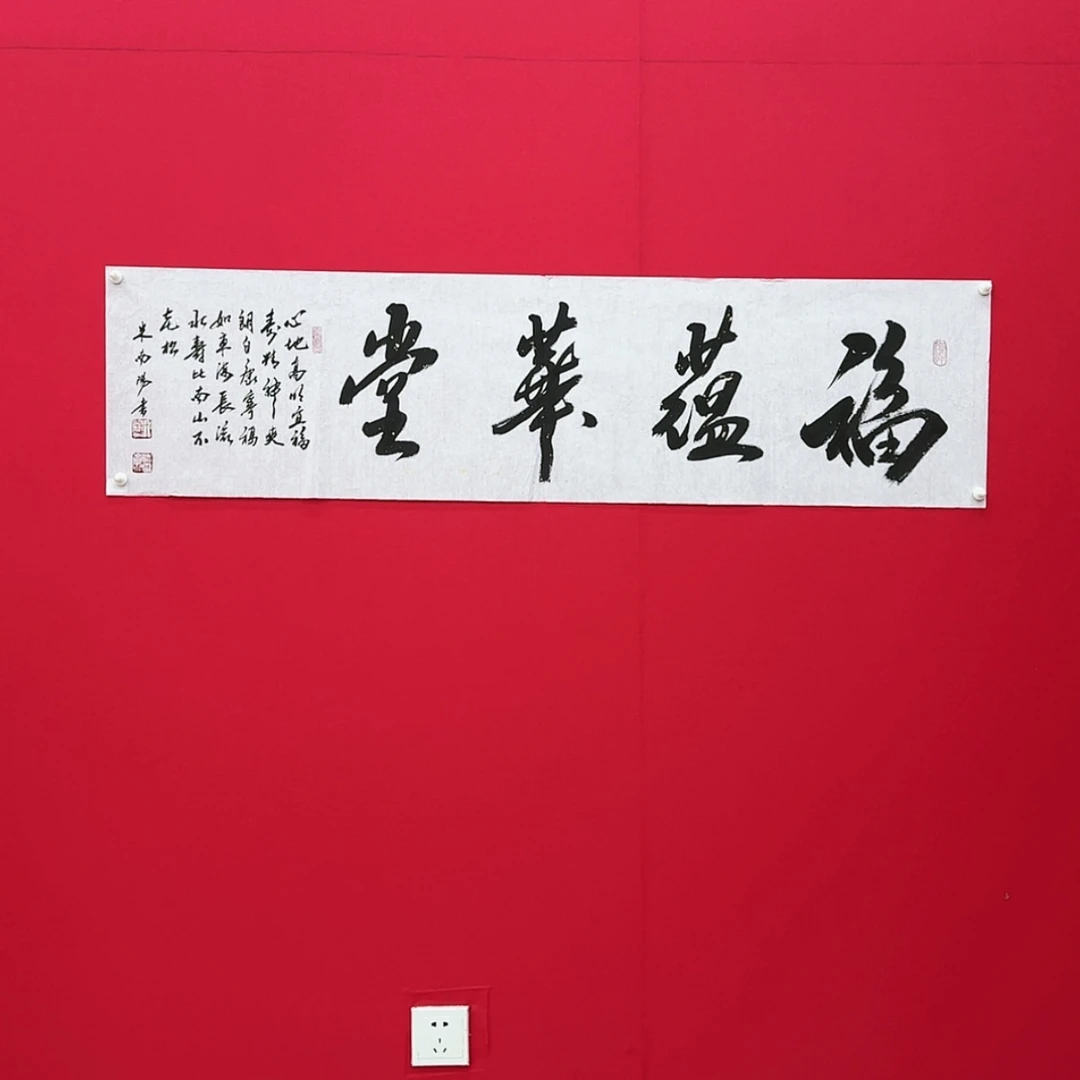 福蕴華堂
心地高明宜福
壽精神爽
朗自康寧福
如東海長流
水壽比南山不
老松
米南陽書